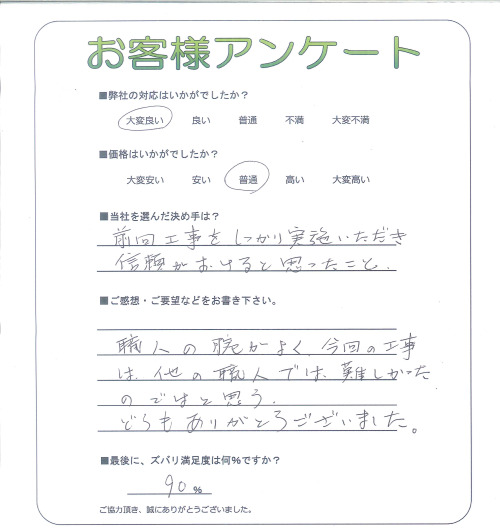 お客様アンケート
■弊社の対応はいかがでしたか？
大変良い 良い 普通 不満 大変不満
■価格はいかがでしたか？
大変安い 安い 普通 高い 大変高い
■当社を選んだ決め手は？
前回工事をしっかり実施いただき
信頼がおけると思ったこと．
■ご感想・ご要望などをお書き下さい。
職人の腕がよく、今回の工事
は、他の職人では、難しかった
のではと思う．
どうもありがとうございました。
■最後に、ズバリ満足度は何%ですか？
90 %
ご協力頂き、誠にありがとうございました。